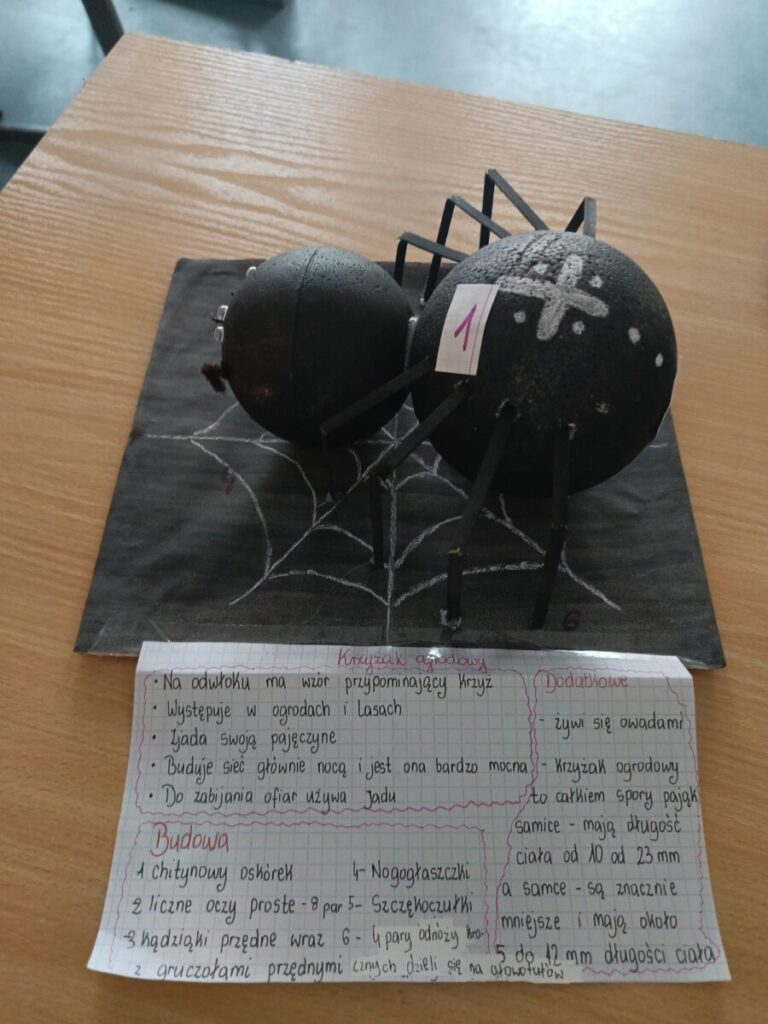 1
4
6
Krzyżak ogrodowy
• Na odwłoku ma wzór przypominający krzyż
• Występuje w ogrodach i Lasach
• Zjada swoją pajęczyne
• Buduje sieć głównie nocą i jest ona bardzo mocna
• Do zabijania ofiar używa Jadu
Budowa
1 chitynowy oskórek
2 liczne oczy proste - 8 par
3 kądziąłki przędne wraz
z gruczołami przędnymi
4- Nogogłaszczki
5- Szczękoczułki
6- 4 pary odnóży kro-
cznych dzieli się na głowotułów
Dodatkowe
- żywi się owadami
- Krzyżak ogrodowy
to całkiem spory pająk
samice - mają długość
ciała od 10 od 23 mm
a samce - są znacznie
mniejsze i mają około
5 do 12 mm długości ciała